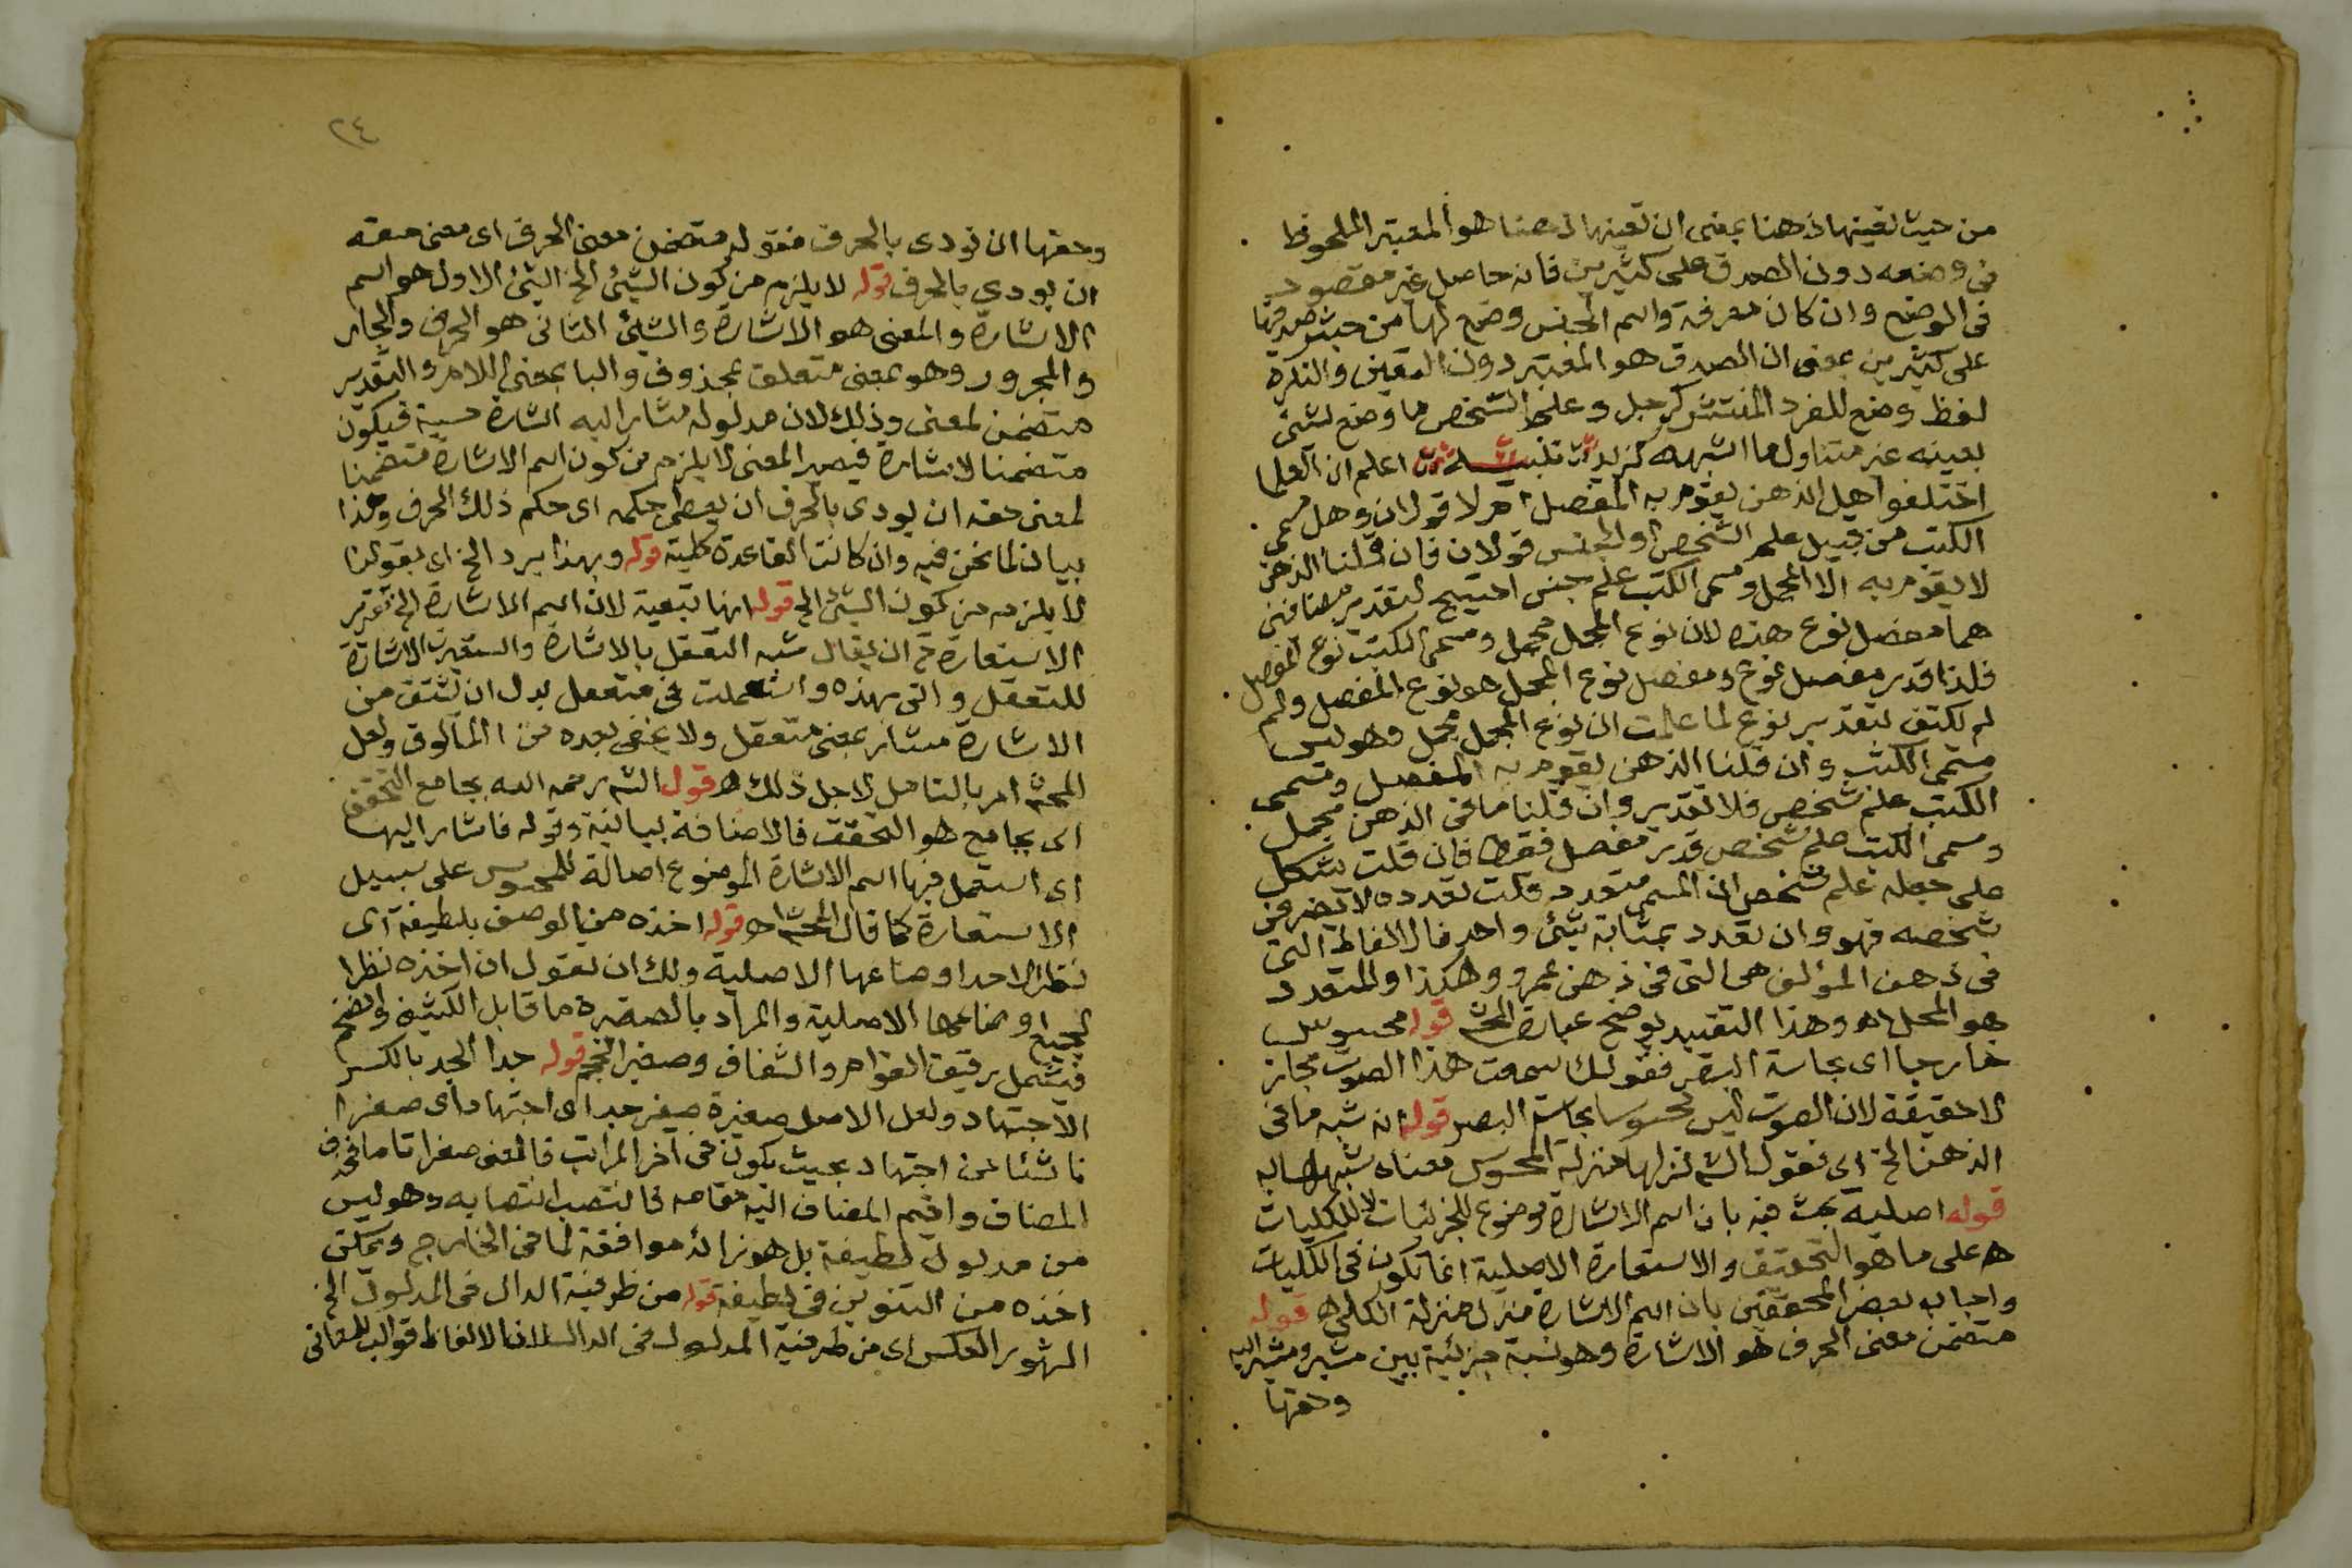 من حيث تعينها ذهنا بمعنى ان تعينها ذهنا هو المعتبر الملحوظ
في وضعه دون الصدق على كثيرين فانه حاصل غير مقصود
في الوضع وان كان معرفة واسم الجنس وضع لها من حيث صدقها
على كثيرين بمعنى ان الصدق هو المعتبر دون التعين والنكرة
لفظ وضع للفرد المنتشر كرجل وعلم الشخص ما وضع لشئ
بعينه غير متناول ما اشبهه كزيد اعلم ان العلما
اختلفوا هل الذهن يقوم به المفصل ام لا قولان وهل مسمى
الكتب من قبيل علم الشخص او الجنس قولان فان قلنا الذهن
لا يقوم به الا المجمل ومسمى الكتب علم جنس احتيج لتقدير مضافين
هما مفصل نوع هذه لان نوع المجمل مجمل ومسمى الكتب نوع المفصل
فلذا قدر مفصل نوع ومفصل نوع المجمل هو نوع المفصل ولم
لم نكتف بتقدير نوع لما علمت ان نوع المجمل مجمل وهو ليس
مسمى الكتب وان قلنا الذهن يقوم به المفصل ومسمى
الكتب علم شخص فلا تقدير وان قلنا ما في الذهن مجمل
ومسمى الكتب علم شخص قدر مفصل فقط فان قلت يشكل
على جعله علم شخص ان المسمى متعدد قلت تعدده لا يضر في
شخصه فهو وان تعدد بمثابة شئ واحد فالالفاظ التي
في ذهن المؤلف هى التي في ذهن عمرو وهكذا والمتعدد
هو المحل اه وهذا التقييد يوضح عبارة المحشى قوله محسوس
خارجا اى بحاسة البصر فقولك سمعت هذا الصوت مجاز
لا حقيقة لان الصوت ليس محسوسا بحاسة البصر قوله انه شبه ما في
الذهن الخ اى فقول الشم نزلها منزلة المحسوس معناه شبهها به
قوله اصلية بحث فيه بان اسم الاشارة موضوع للجزئيات لا للكليات
ه على ما هو التحقيق والاستعارة الاصلية انما تكون في الكليات
واجاب بعض المحققين بان اسم الاشارة منزل منزلة الكلى ه قوله
متضمن معنى الحرف هو الاشارة وهو نسبة جزئية بين مشير ومشير اليه
وحقها
٢٤
وحقها ان تودى بالحرف فقوله متضمن معنى الحرف اى معنى حقه
ان يودى بالحرف قوله لا يلزم من كون الشئ الخ الشئ الاول هو اسم
الاشارة والمعنى هو الاشارة والشئ الثانى هو الحرف والجار
والمجرور وهو بمعنى متعلق بمحذوف والبا بمعنى اللام والتقدير
متضمن لمعنى وذلك لان مدلوله مشار اليه اشارة حسية فيكون
متضمنا لاشارة فيصير المعنى لا يلزم من كون اسم الاشارة متضمنا
لمعنى حقه ان يودى بالحرف ان يعطى حكمه اى حكم ذلك الحرف وهذا
بيان لما نحن فيه وان كانت القاعدة كلية قوله وبهذا يرد الخ اى بقولنا
لا يلزم من كون الشئ الخ قوله انها تبعية لان اسم الاشارة الخ تقرير
الاستعارة ح ان يقال شبه التعقل بالاشارة واستعيرت الاشارة
للتعقل واتى بهذه واستعملت في متعقل بدل ان يشتق من
الاشارة مشار بمعنى متعقل ولا يخفى بعده من المألوف ولعل
المحشى امر بالتامل لاجل ذلك ه قول الشم رحمه الله بجامع التحقق
اى بجامع هو التحقق فالاضافة بيانية وقوله فاشار اليها
اى استعمل فيها اسم الاشارة الموضوع اصالة للمحسوس على سبيل
الاستعارة كما قال المحشى اه قوله اخذه من الوصف بلطيفة اى
نظرا لاحد اوضاعها الاصلية ولك ان تقول ان اخذه نظرا
لجميع اوضاعها الاصلية والمراد بالصغيرة ما قابل الكثيف والضخم
فيشمل رقيق القوام والشفاف وصغير الحجم قوله جدا الجد بالكسر
الاجتهاد ولعل الاصل صغيرة صغر جد اى اجتهاد اى صغرا
ناشئا عن اجتهاد بحيث يكون في اخر المراتب فالمعنى صغرا تاما فحذف
المضاف واقيم المضاف اليه مقامه فانتصب انتصابه وهو ليس
من مدلول لطيفة بل هو زائد موافقة لما في الخارج ويمكن
اخذه من التنوين في لطيفة قوله من ظرفية الدال في المدلول الخ
المشهور العكس اى من ظرفية المدلول في الدال لان الالفاظ قوالب للمعانى